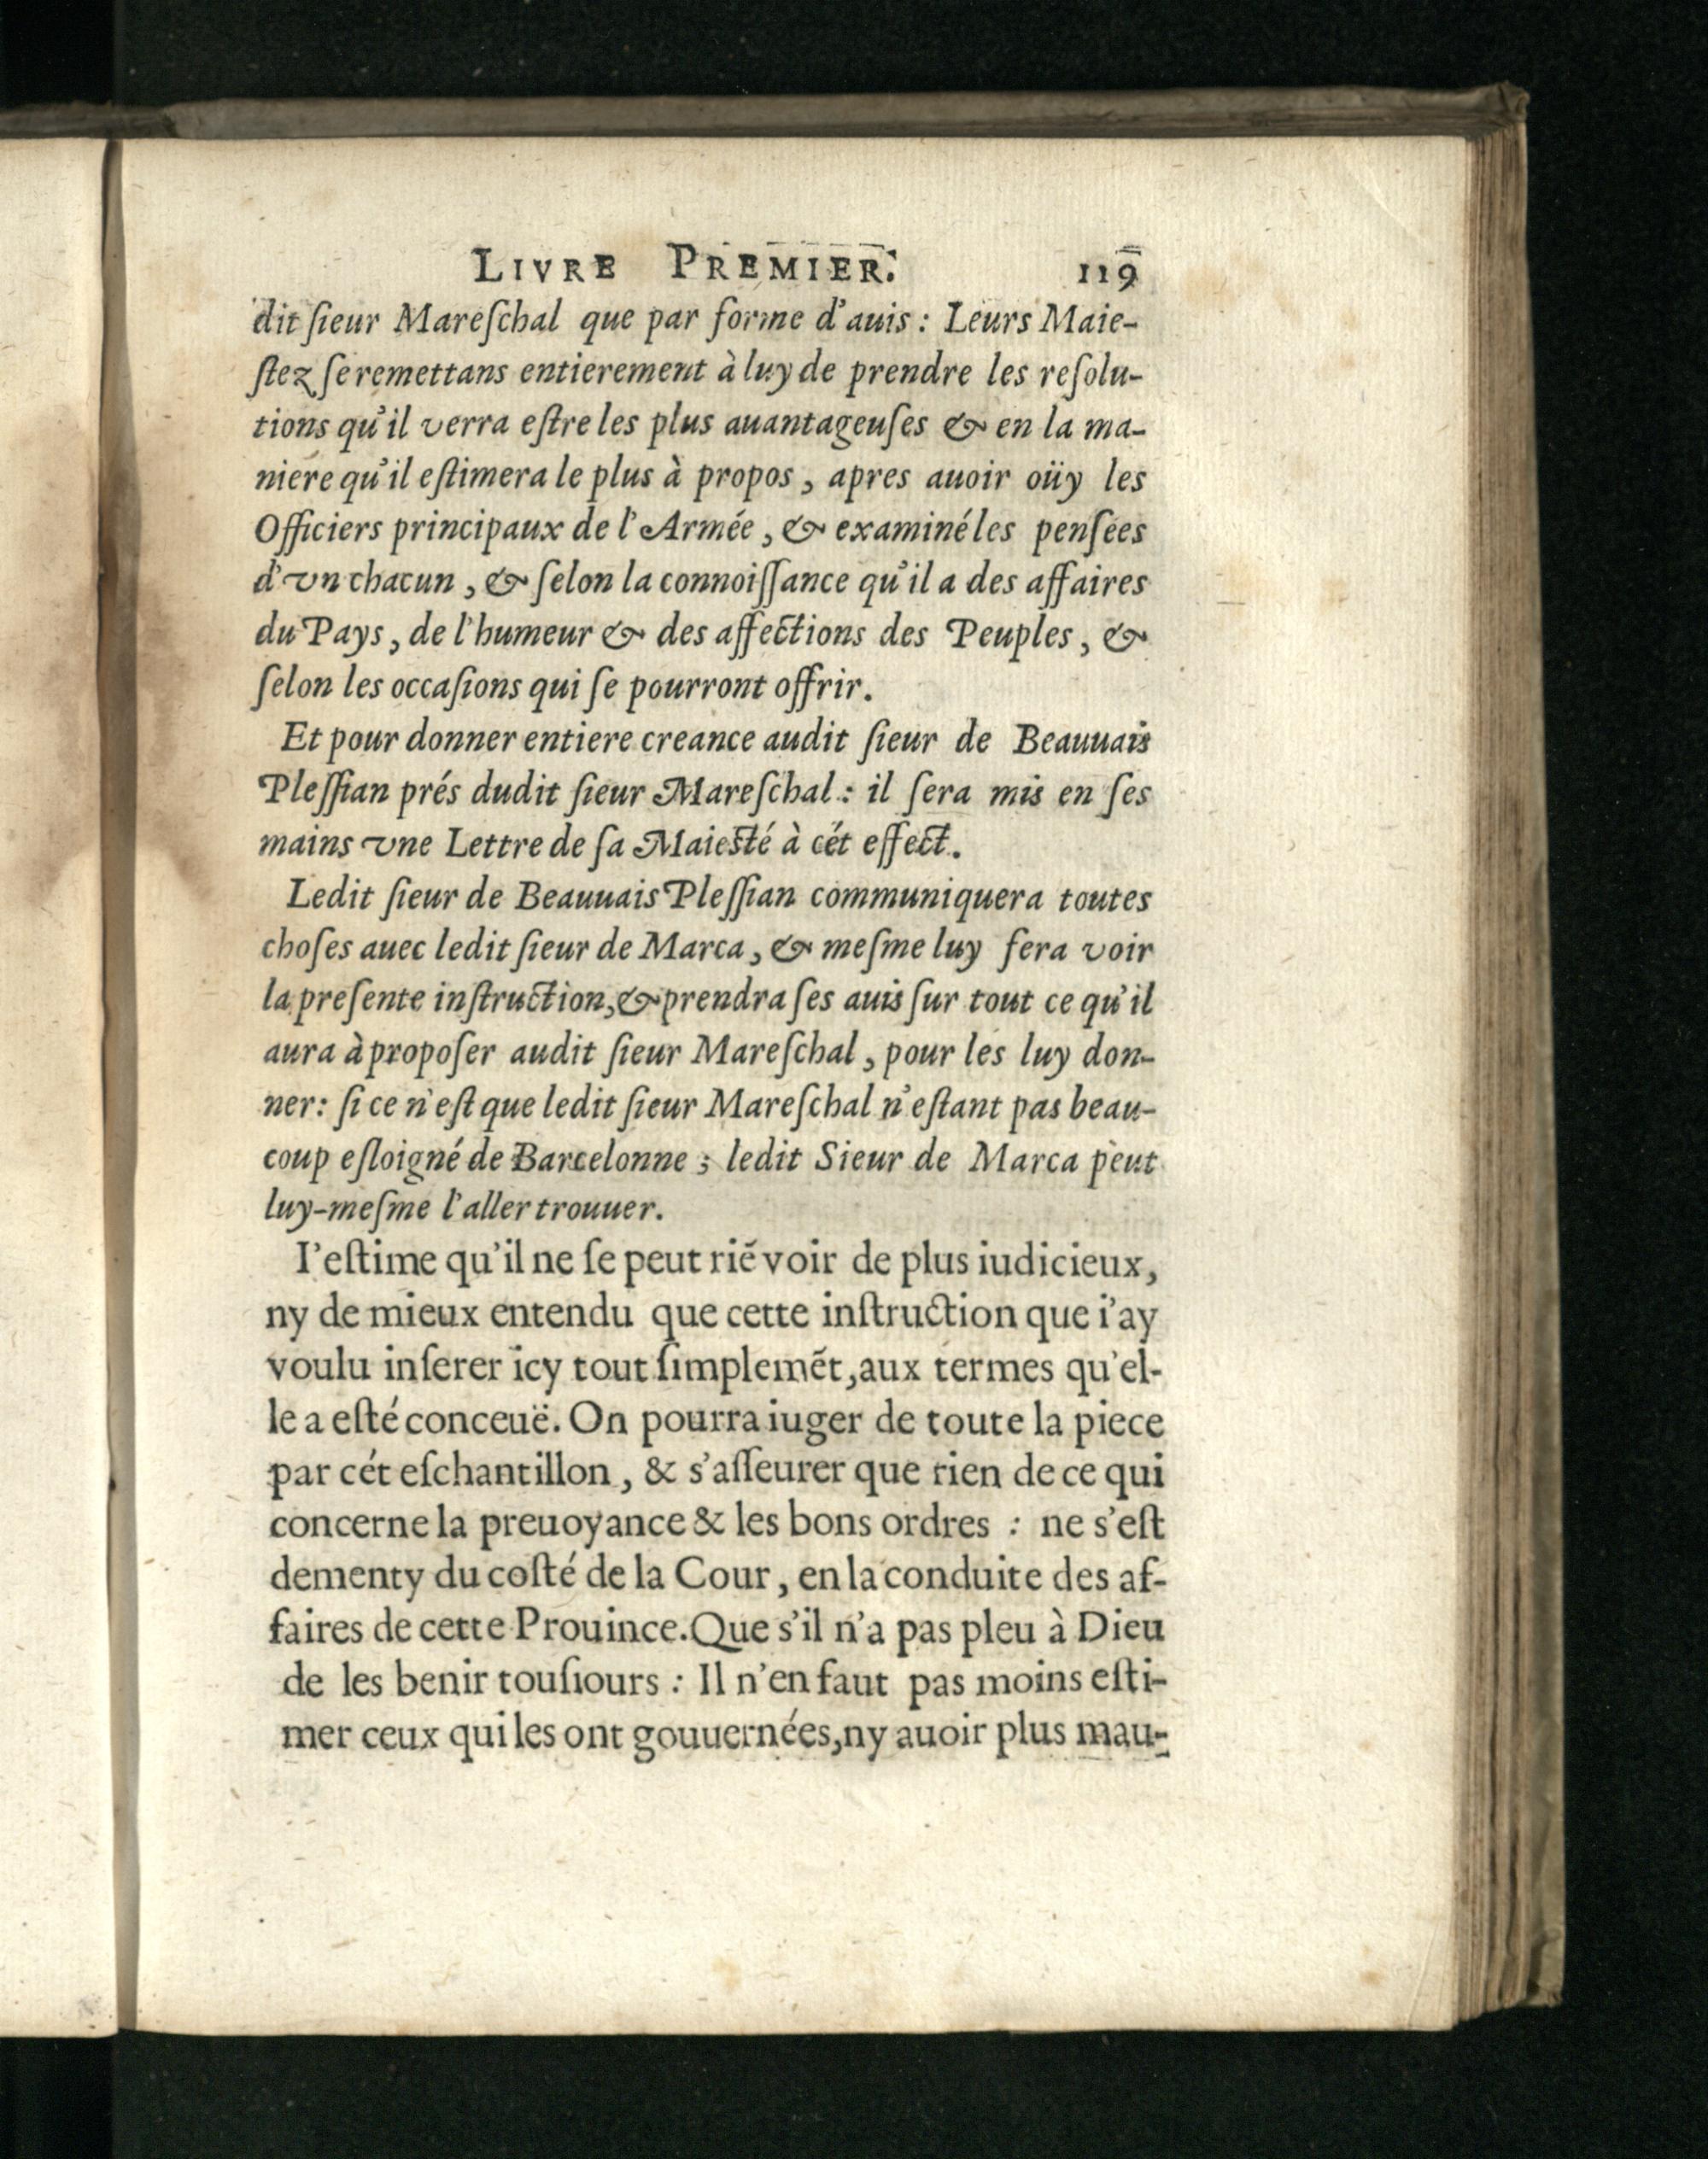 LIVRE PREMIER. 119
dit ſieur Mareſchal que par forme d'auis : Leurs Maie-
ſtez ſe remettans entierement à luy de prendre les reſolu-
tions qu'il verra eſtre les plus auantageuſes & en la ma-
niere qu'il eſtimera le plus à propos, apres auoir oüy les
Officiers principaux de l'Armée, & examiné les penſées
d'vn chacun, & ſelon la connoiſſance qu'il a des affaires
du Pays, de l'humeur & des affections des Peuples, &
ſelon les occaſions qui ſe pourront offrir.
Et pour donner entiere creance audit ſieur de Beauuais
Pleſſian prés dudit ſieur Mareſchal : il ſera mis en ſes
mains vne Lettre de ſa Maiesté à cét effect.
Ledit ſieur de Beauuais Pleſſian communiquera toutes
choſes auec ledit ſieur de Marca, & meſme luy fera voir
la preſente inſtruction, & prendra ſes auis ſur tout ce qu'il
aura à propoſer audit ſieur Mareſchal, pour les luy don-
ner : ſi ce n'eſt que ledit ſieur Mareſchal n'eſtant pas beau-
coup eſloigné de Barcelonne ; ledit Sieur de Marca peut
luy-meſme l'aller trouuer.
I'eſtime qu'il ne ſe peut riẽ voir de plus iudicieux,
ny de mieux entendu que cette inſtruction que i'ay
voulu inſerer icy tout ſimplemẽt, aux termes qu'el-
le a eſté conceuë. On pourra iuger de toute la piece
par cét eſchantillon, & s'aſſeurer que rien de ce qui
concerne la preuoyance & les bons ordres : ne s'eſt
dementy du coſté de la Cour, en la conduite des af-
faires de cette Prouince. Que s'il n'a pas pleu à Dieu
de les benir touſiours : Il n'en faut pas moins eſti-
mer ceux qui les ont gouuernées, ny auoir plus mau-